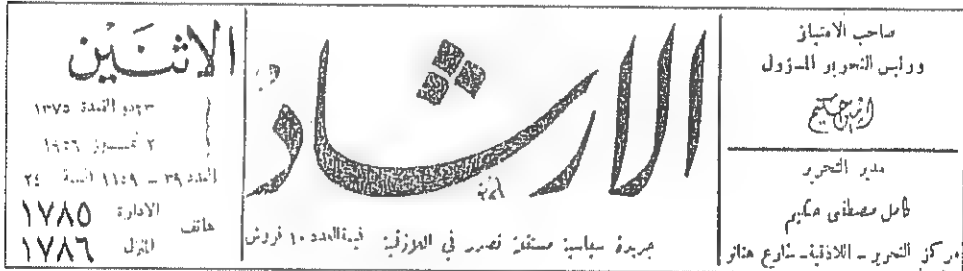 صاحب الامتياز
ورئيس التحرير المسؤول
مدير التحرير
كامل مصطفى حكيم
مركز التحرير - اللاذقية - شارع هنانو
الارشاد
جريدة سياسية مستقلة تصدر في اللاذقية قيمة العدد ١٠ قروش
الاثنين
ذو القعدة ١٣٧٥
٢ تموز ١٩٥٦
العدد ٣٩ - ١١٥٩ السنة ٢٤
هاتف
الادارة ١٧٨٥
المنزل ١٧٨٦